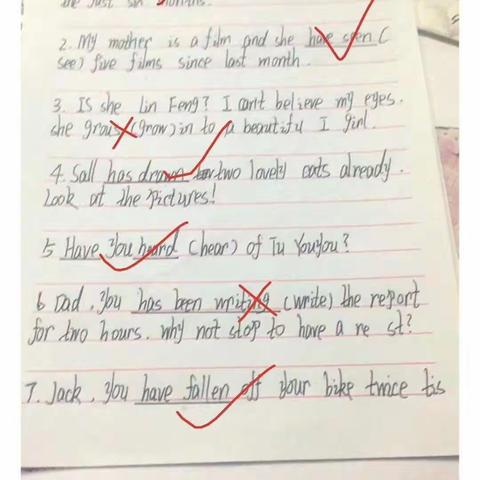 2. My mother is a film and she have seen (
see) five films since last month.
3. Is she Lin Feng? I can't believe my eyes.
she grows (grow) in to a beautiful I girl.
4. Sall has drawn two lovely cats already.
Look at the Pictures!
5 Have you heard (hear) of Tu Youyou?
6 Dad, you has been writing (write) the report
for two hours. why not stop to have a re st?
7. Jack, you have fallen off your bike twice tis